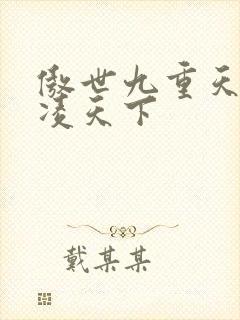 傲世九重天
凌天下
戴某某